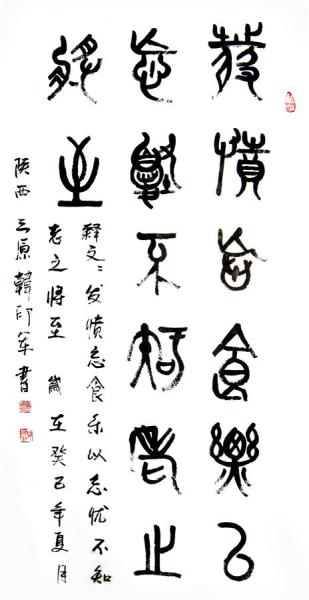 發憤忘食樂以
忘憂不知老之
將至
释文：发愤忘食乐以忘忧不知
老之将至 歲在癸巳年夏月
陕西三原韓印军書